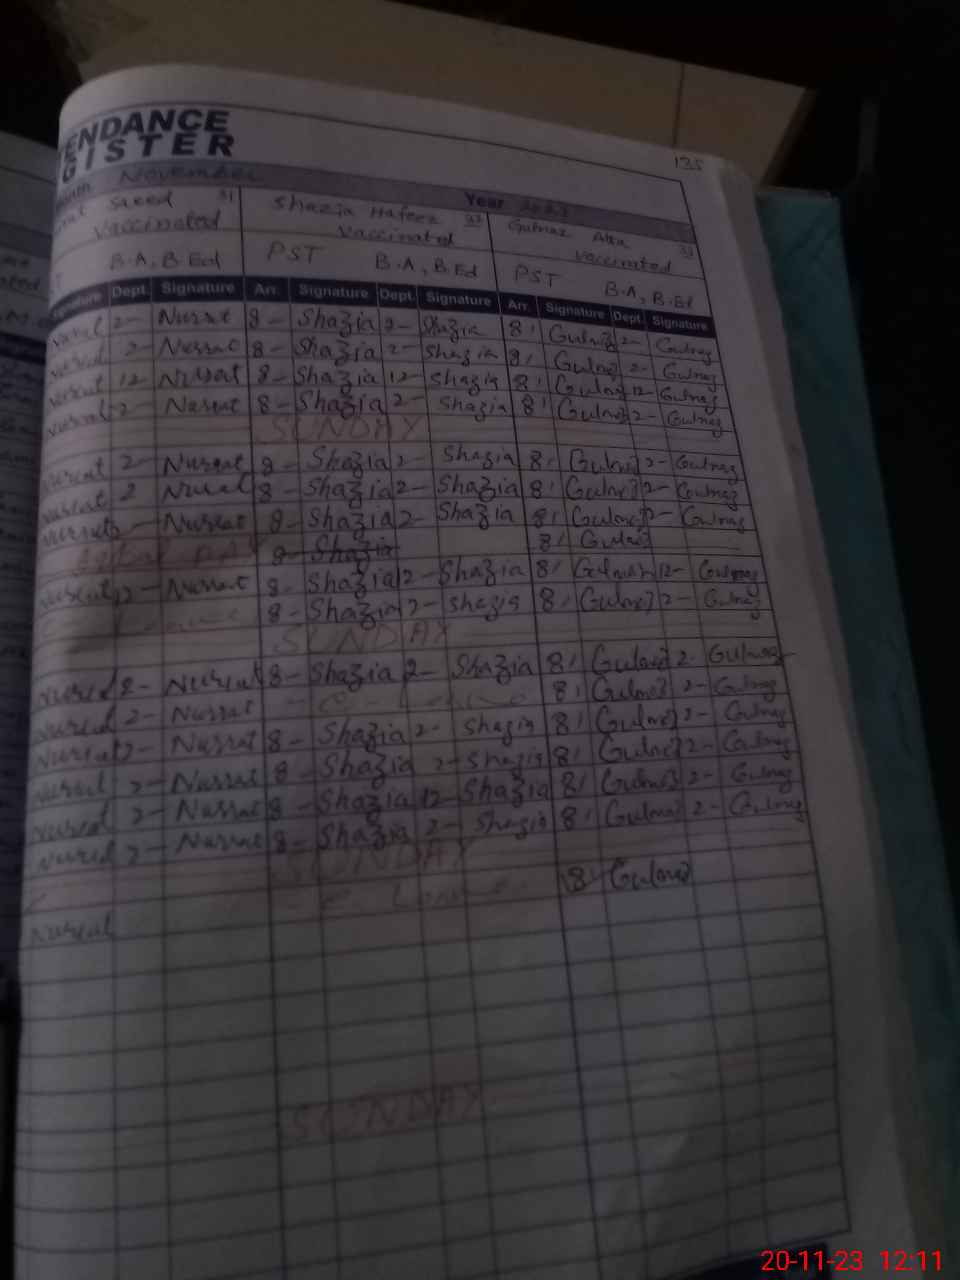 ENDANCE
GISTER
135
November
Year
Saeed 31 Shazia Hafeez 32 Gulnaz 33
vaccinated vaccinated vaccinated
B.A, B.Ed PST B.A, B.Ed PST B.A, B.Ed
Dept. Signature Arr. Signature Dept. Signature Arr. Signature Dept. Signature
2- Nusrat 8- Shazia 2- Shazia 8! Gulnaz 2- Gulnaz
2- Nusrat 8- Shazia 2- Shazia 8! Gulnaz 2- Gulnaz
Nusrat 12- Nusrat 8- Shazia 12- Shazia 8! Gulnaz 12- Gulnaz
Nusrat 2- Nusrat 8- Shazia 2- Shazia 8! Gulnaz 2- Gulnaz
SUNDAY
Nusrat 2- Nusrat 8- Shazia 2- Shazia 8! Gulnaz 2- Gulnaz
Nusrat 2 Nusrat 8- Shazia 2- Shazia 8! Gulnaz 2- Gulnaz
Nusrat 2- Nusrat 8- Shazia 2- Shazia 8! Gulnaz 2- Gulnaz
DAY 8- Shazia 8! Gulnaz
Nusrat 12- Nusrat 8- Shazia 12- Shazia 8! Gulnaz 12- Gulnaz
8- Shazia 2- Shazia 8! Gulnaz 2- Gulnaz
SUNDAY
Nusrat 2- Nusrat 8- Shazia 2- Shazia 8! Gulnaz 2- Gulnaz
Nusrat 2- Nusrat 8! Gulnaz 2- Gulnaz
Nusrat 2- Nusrat 8- Shazia 2- Shazia 8! Gulnaz 2- Gulnaz
Nusrat 2- Nusrat 8- Shazia 2- Shazia 8! Gulnaz 2- Gulnaz
Nusrat 2- Nusrat 8- Shazia 12- Shazia 8! Gulnaz 2- Gulnaz
Nusrat 2- Nusrat 8- Shazia 2- Shazia 8! Gulnaz 2- Gulnaz
SUNDAY
8! Gulnaz
Nusrat
SUNDAY
20-11-23 12:11